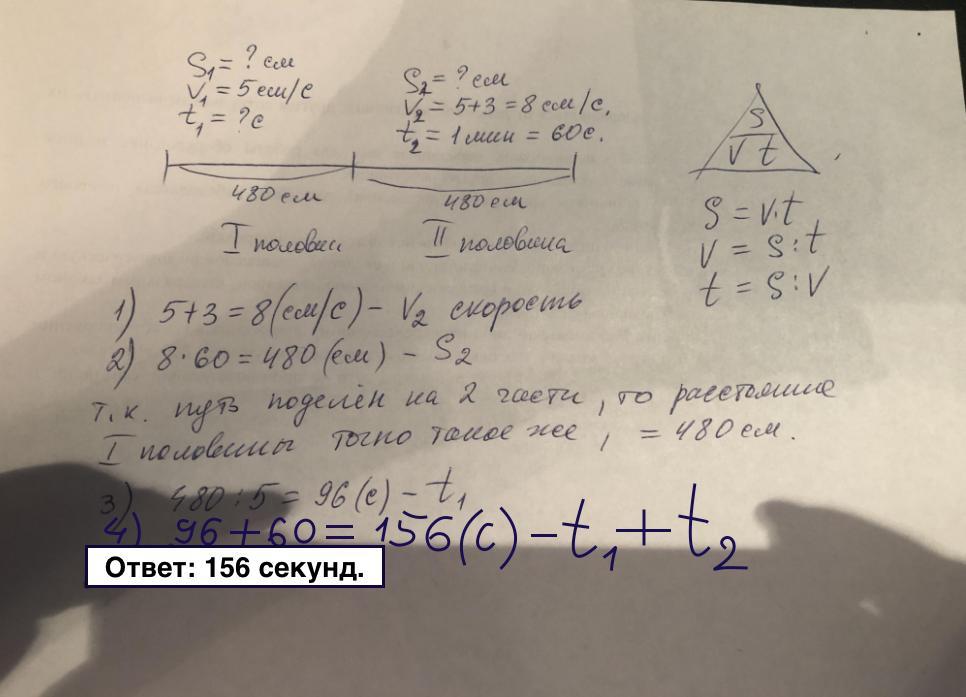 S₁ = ? см
V₁ = 5 см/с
t₁ = ? с
S₂ = ? см
V₂ = 5+3 = 8 см/с.
t₂ = 1 мин = 60 с.
480 см
480 см
I половин
II половина
S
V t
S = V·t
V = S : t
t = S : V
1) 5+3 = 8 (см/с) – V₂ скорость
2) 8·60 = 480 (см) – S₂
т.к. путь поделён на 2 части, то расстояние
I половины точно такое же, = 480 см.
3) 480 : 5 = 96 (с) – t₁
4) 96 + 60 = 156 (с) – t₁ + t₂
Ответ: 156 секунд.